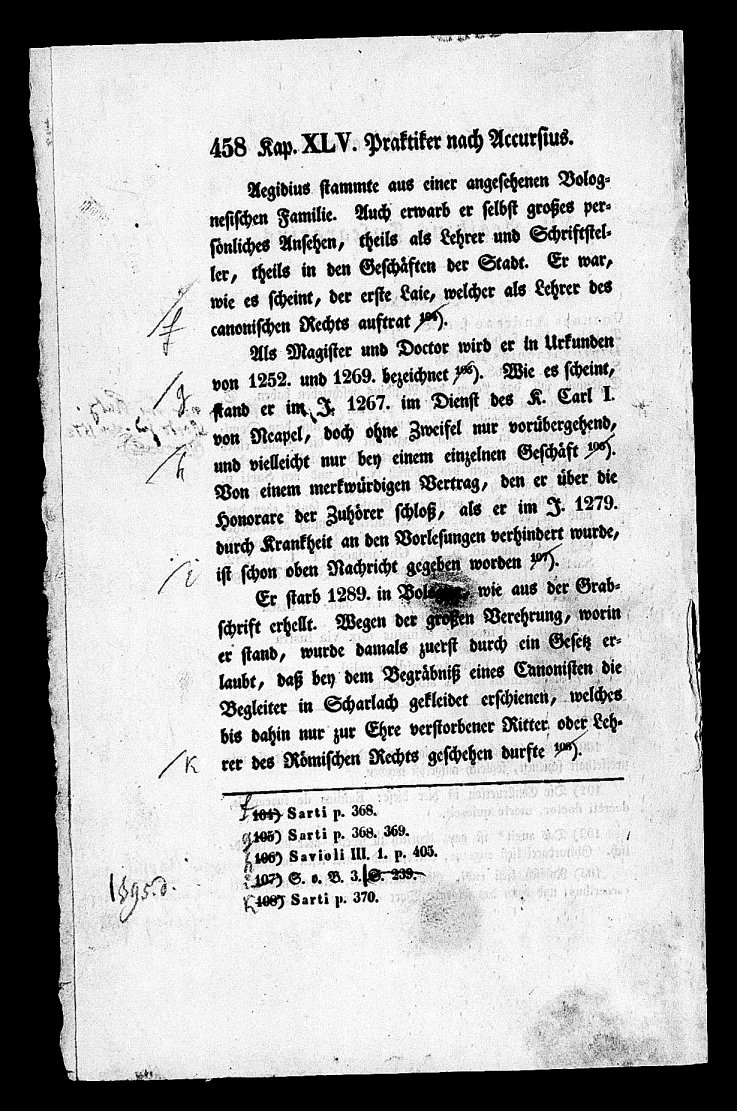 458 Kap. XLV. Praktiker nach Accursius.
Aegidius stammte aus einer angesehenen Bolog-
nesischen Familie. Auch erwarb er selbst großes per-
sönliches Ansehen, theils als Lehrer und Schriftstel-
ler, theils in den Geschäften der Stadt. Er war,
wie es scheint, der erste Laie, welcher als Lehrer des
f canonischen Rechts auftrat 104).
Als Magister und Doctor wird er in Urkunden
g von 1252. und 1269. bezeichnet 105). Wie es scheint,
stand er im J. 1267. im Dienst des K. Carl I.
von Neapel, doch ohne Zweifel nur vorübergehend,
h und vielleicht nur bey einem einzelnen Geschäft 106).
Von einem merkwürdigen Vertrag, den er über die
Honorare der Zuhörer schloß, als er im J. 1279.
durch Krankheit an den Vorlesungen verhindert wurde,
i ist schon oben Nachricht gegeben worden 107).
Er starb 1289. in Bologna, wie aus der Grab-
schrift erhellt. Wegen der großen Verehrung, worin
er stand, wurde damals zuerst durch ein Gesetz er-
laubt, daß bey dem Begräbniß eines Canonisten die
Begleiter in Scharlach gekleidet erschienen, welches
bis dahin nur zur Ehre verstorbener Ritter oder Leh-
k rer des Römischen Rechts geschehen durfte 108).
f 104) Sarti p. 368.
g 105) Sarti p. 368. 369.
h 106) Savioli III. 1. p. 405.
i 107) S. o. B. 3. S. 239.
k 108) Sarti p. 370.